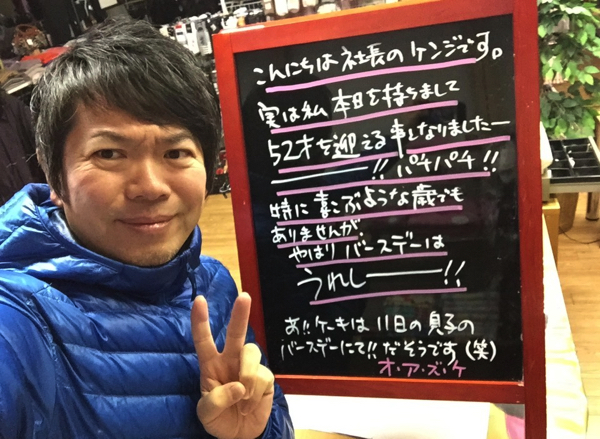 こんにちは社長のケンジです。
実は私本日を持ちまして
52才を迎える事になりましたー
ー!! パチパチ!!
特に喜こぶような歳でも
ありませんが、
やはりバースデーは
うれしー!!
あ!!ケーキは11日の息子の
バースデーにて!!だそうです(笑)
オ・ア・ズ・ケ